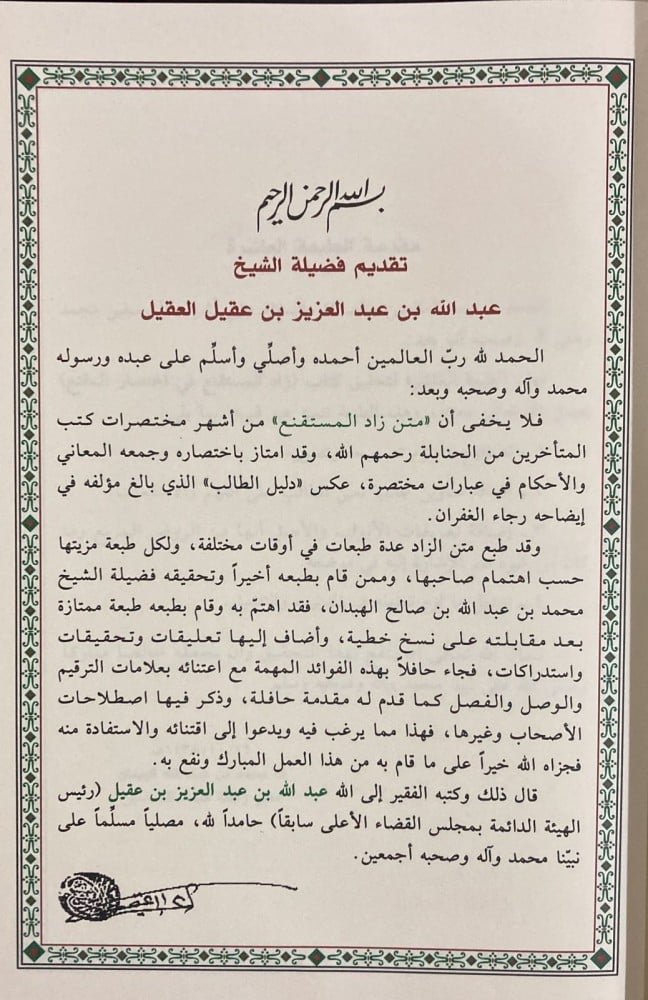 بسم الله الرحمن الرحيم
تقديم فضيلة الشيخ
عبد الله بن عبد العزيز بن عقيل العقيل
الحمد لله ربّ العالمين أحمده وأصلِّي وأسلِّم على عبده ورسوله
محمد وآله وصحبه وبعد:
فلا يخفى أن «متن زاد المستقنع» من أشهر مختصرات كتب
المتأخرين من الحنابلة رحمهم الله، وقد امتاز باختصاره وجمعه المعاني
والأحكام في عبارات مختصرة، عكس «دليل الطالب» الذي بالغ مؤلفه في
إيضاحه رجاء الغفران.
وقد طبع متن الزاد عدة طبعات في أوقات مختلفة، ولكل طبعة مزيتها
حسب اهتمام صاحبها، وممن قام بطبعه أخيراً وتحقيقه فضيلة الشيخ
محمد بن عبد الله بن صالح الهبدان، فقد اهتمّ به وقام بطبعه طبعة ممتازة
بعد مقابلته على نسخ خطية، وأضاف إليها تعليقات وتحقيقات
واستدراكات، فجاء حافلاً بهذه الفوائد المهمة مع اعتنائه بعلامات الترقيم
والوصل والفصل كما قدم له مقدمة حافلة، وذكر فيها اصطلاحات
الأصحاب وغيرها، فهذا مما يرغب فيه ويدعوا إلى اقتنائه والاستفادة منه
فجزاه الله خيراً على ما قام به من هذا العمل المبارك ونفع به.
قال ذلك وكتبه الفقير إلى الله عبد الله بن عبد العزيز بن عقيل (رئيس
الهيئة الدائمة بمجلس القضاء الأعلى سابقاً) حامداً لله، مصلياً مسلِّماً على
نبيّنا محمد وآله وصحبه أجمعين.